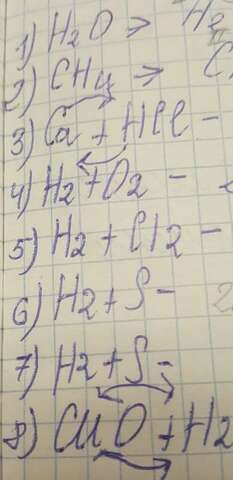 1) H2O → H2
2) CH4 → C
3) Ca + HCl -
4) H2 + O2 -
5) H2 + Cl2 -
6) H2 + S -
7) H2 + S -
8) CuO + H2